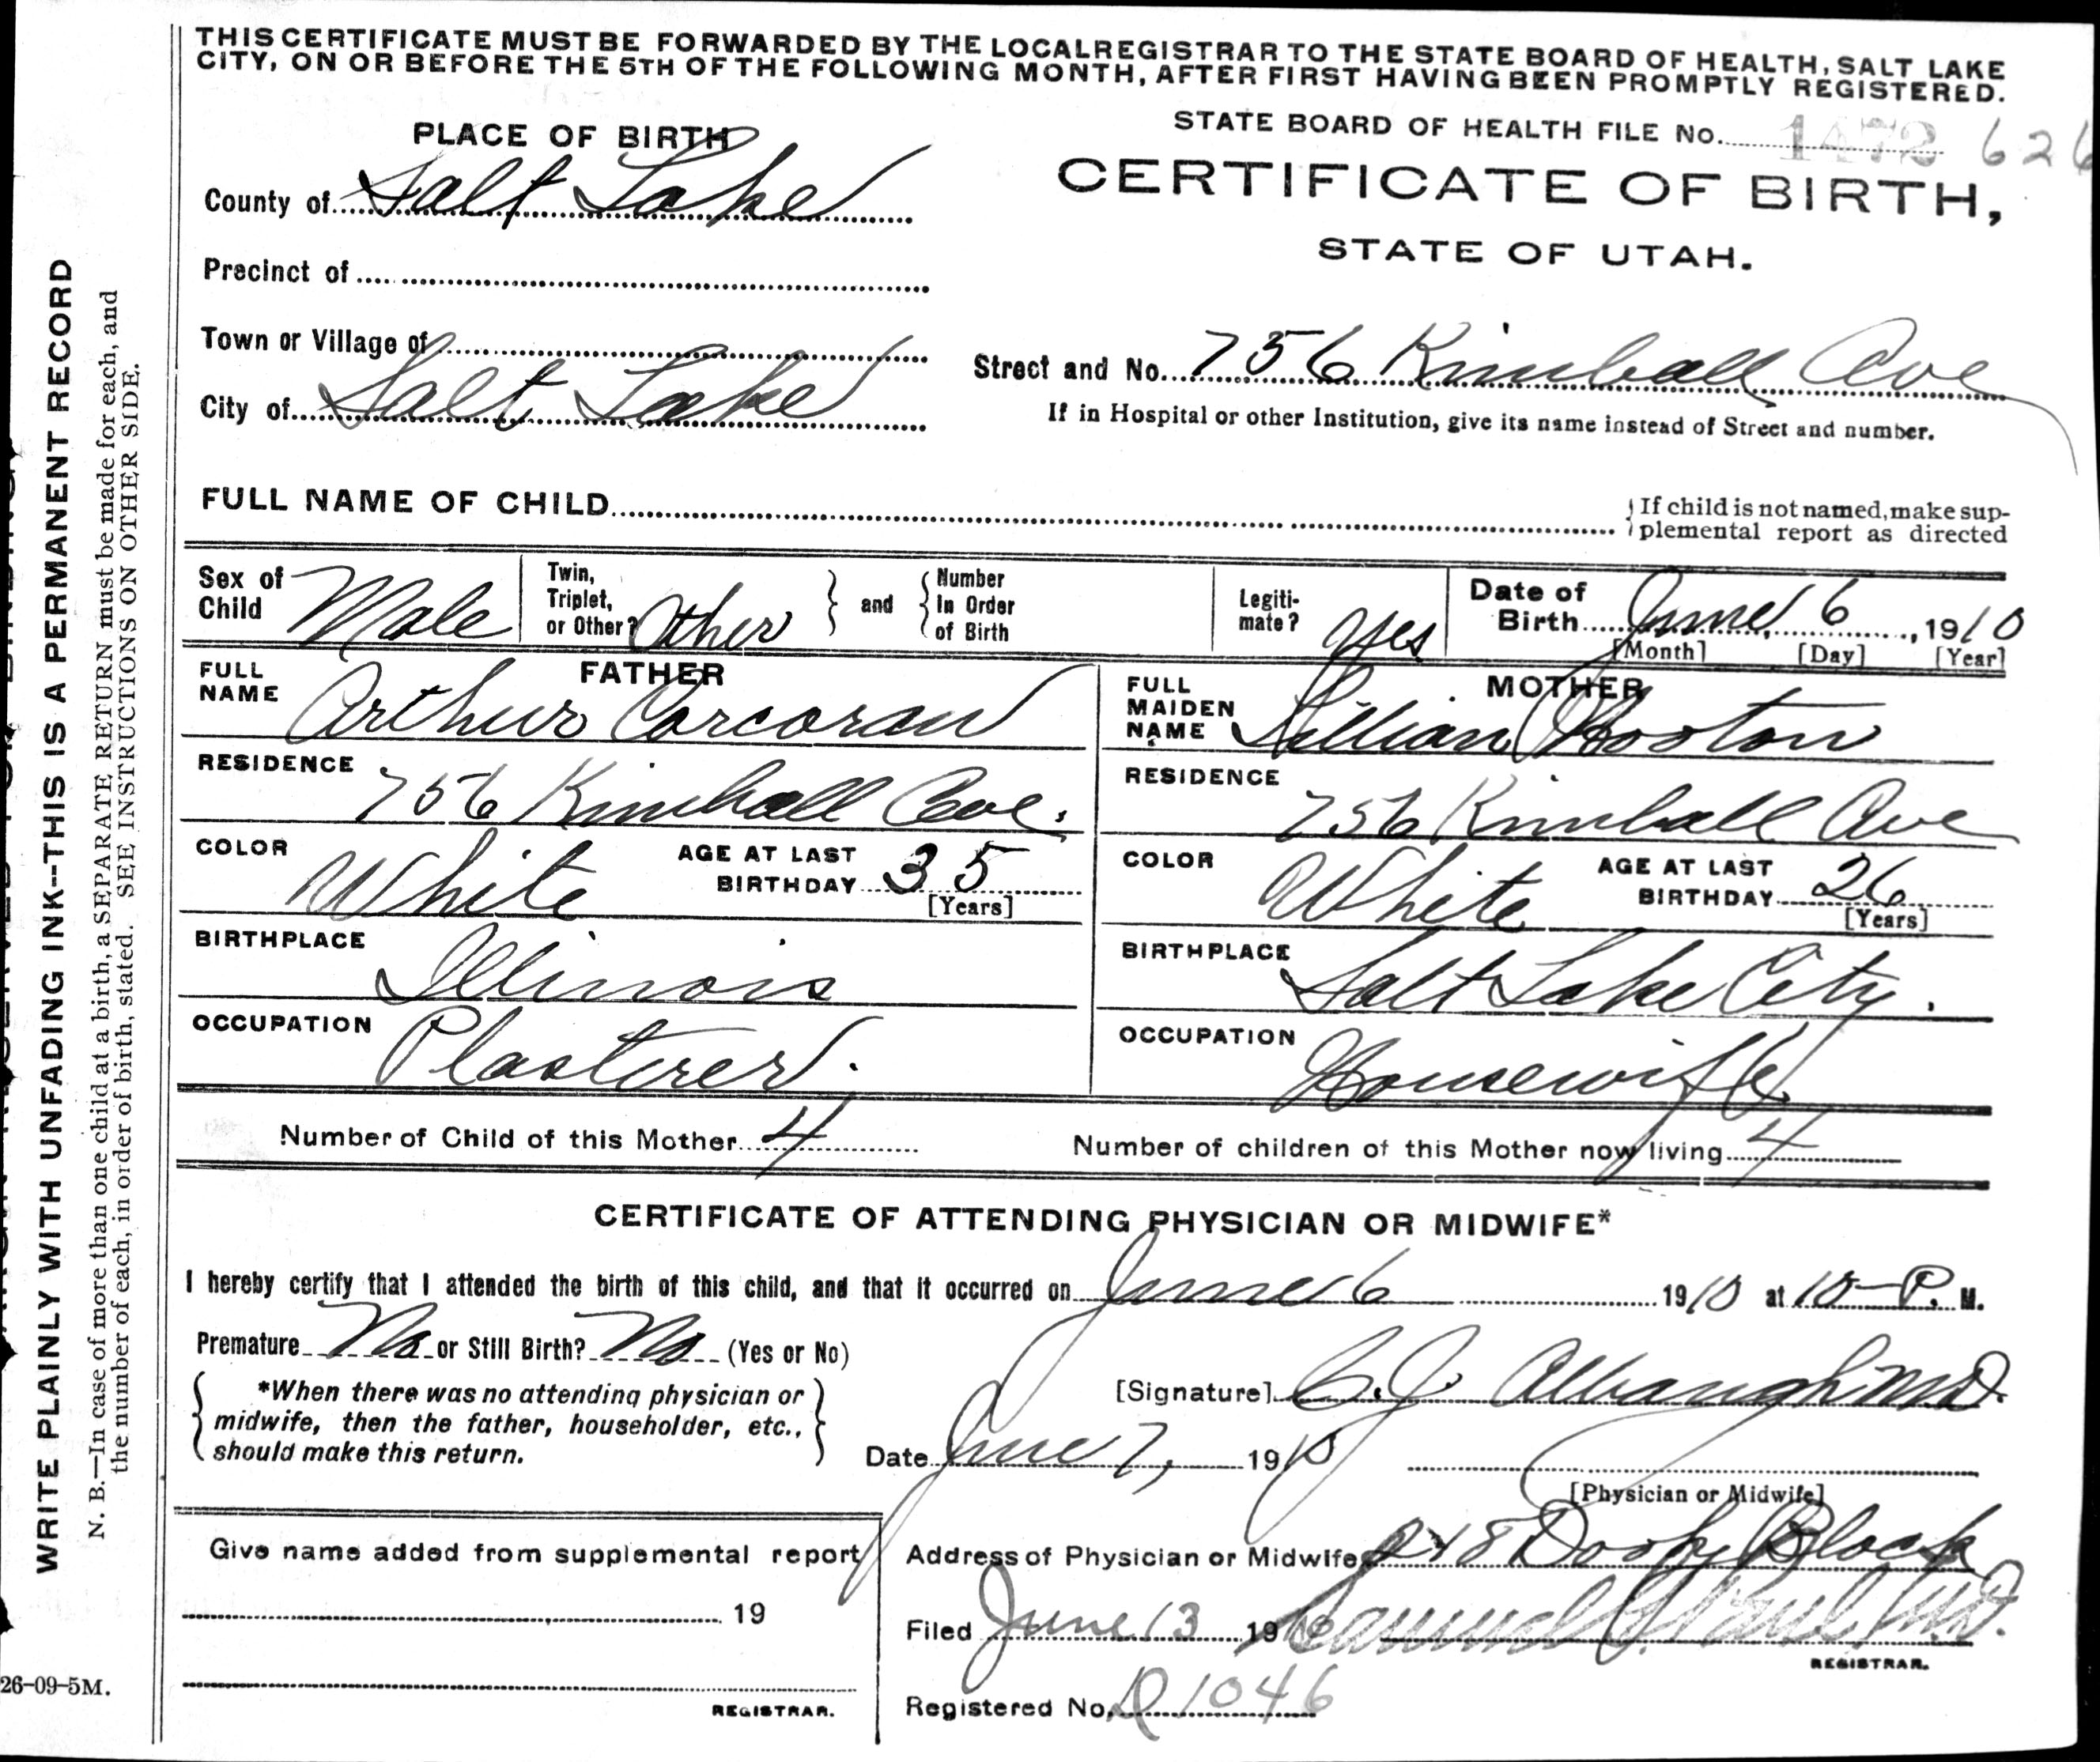 THIS CERTIFICATE MUST BE FORWARDED BY THE LOCAL REGISTRAR TO THE STATE BOARD OF HEALTH, SALT LAKE
CITY, ON OR BEFORE THE 5TH OF THE FOLLOWING MONTH, AFTER FIRST HAVING BEEN PROMPTLY REGISTERED.
PLACE OF BIRTH
STATE BOARD OF HEALTH FILE No. 1472 626
County of Salt Lake
CERTIFICATE OF BIRTH,
STATE OF UTAH.
Precinct of
Town or Village of
Street and No. 756 Kimball Ave
City of Salt Lake
If in Hospital or other Institution, give its name instead of Street and number.
FULL NAME OF CHILD
If child is not named, make sup-
plemental report as directed
Sex of Child Male
Twin, Triplet, or Other? Other and Number In Order of Birth
Legiti-mate? Yes
Date of Birth June 6, 1910
[Month] [Day] [Year]
FATHER
FULL NAME Arthur Corcoran
RESIDENCE 756 Kimball Ave.
COLOR White AGE AT LAST BIRTHDAY 35
[Years]
BIRTHPLACE Illinois
OCCUPATION Plasterer.
MOTHER
FULL MAIDEN NAME Lillian Hooton
RESIDENCE 756 Kimball Ave
COLOR White AGE AT LAST BIRTHDAY 26
[Years]
BIRTHPLACE Salt Lake City.
OCCUPATION Housewife
Number of Child of this Mother 4
Number of children of this Mother now living 4
CERTIFICATE OF ATTENDING PHYSICIAN OR MIDWIFE*
I hereby certify that I attended the birth of this child, and that it occurred on June 6 1910 at 10 P. M.
Premature No or Still Birth? No (Yes or No)
*When there was no attending physician or
midwife, then the father, householder, etc.,
should make this return.
[Signature] C.J. Albaugh M.D.
Date June 7, 1910
[Physician or Midwife]
Address of Physician or Midwife 218 Dooly Block
Give name added from supplemental report
19
REGISTRAR.
Filed June 13 1910 Samuel G. Paul, M.D.
REGISTRAR.
Registered No. D 1046
26-09-5M.
WRITE PLAINLY WITH UNFADING INK--THIS IS A PERMANENT RECORD
N. B.—In case of more than one child at a birth, a SEPARATE RETURN must be made for each, and
the number of each, in order of birth, stated. SEE INSTRUCTIONS ON OTHER SIDE.